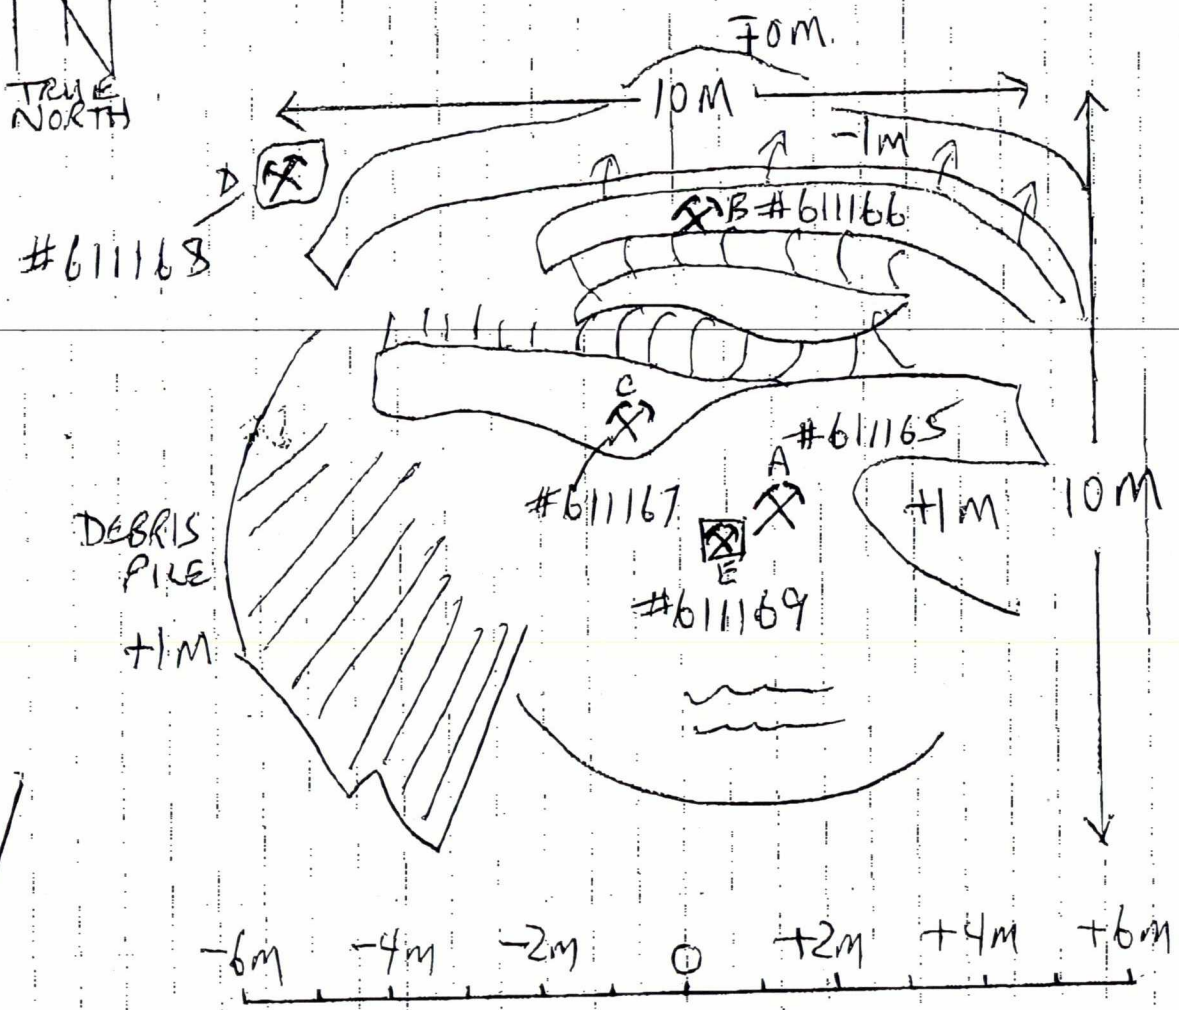 N
TRUE
NORTH
70M.
10M
-1M
D
#611168
B #611166
C
#611165
A
#611167
+1M
10M
DEBRIS
PILE
+1M
E
#611169
-6M -4M -2M 0 +2M +4M +6M